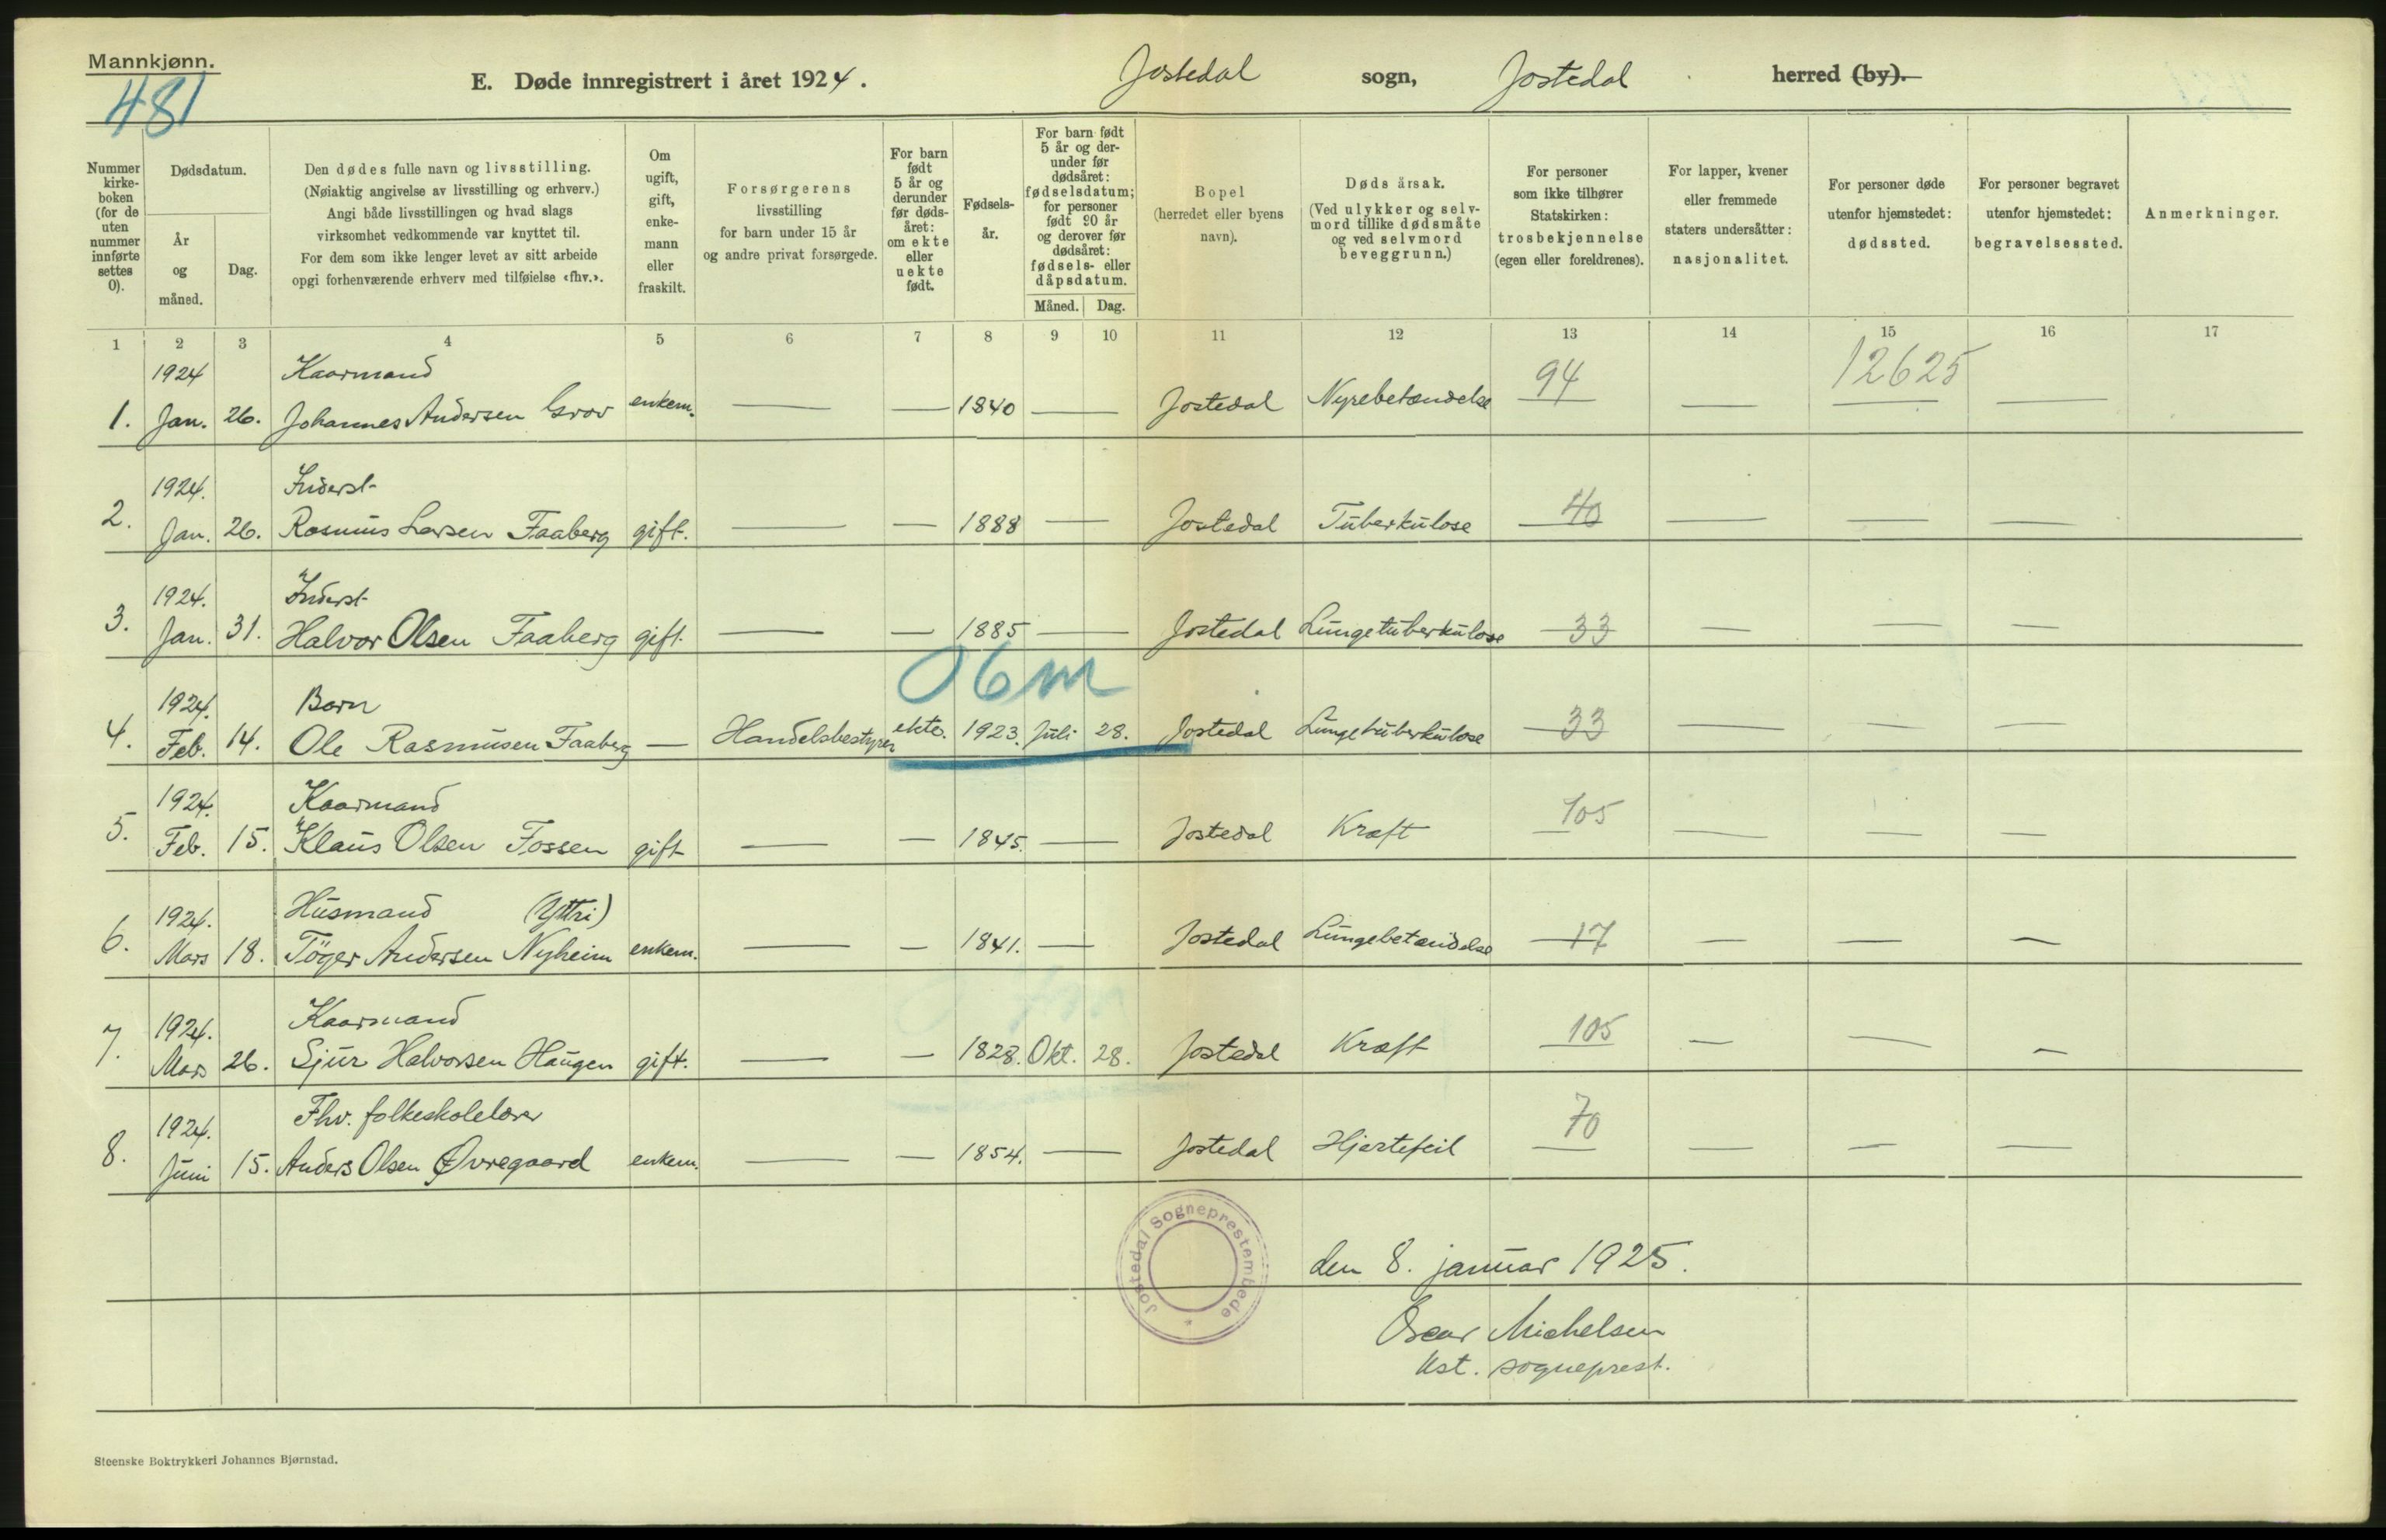 Mannkjønn.
481
E. Døde innregistrert i året 1924.
Jostedal sogn, Jostedal herred (by).
Nummer
kirke-
boken
(for de
uten
nummer
innførte
settes
0).
Dødsdatum.
År
og
måned.
Dag.
Den dødes fulle navn og livsstilling.
(Nøiaktig angivelse av livsstilling og erhverv.)
Angi både livsstillingen og hvad slags
virksomhet vedkommende var knyttet til.
For dem som ikke lenger levet av sitt arbeide
opgi forhenværende erhverv med tilføielse «fhv.».
Om
ugift,
gift,
enke-
mann
eller
fraskilt.
Forsørgerens
livsstilling
for barn under 15 år
og andre privat forsørgede.
For barn
født
5 år og
derunder
før døds-
året:
om ekte
eller
uekte
født.
Fødsels-
år.
For barn født
5 år og der-
under før
dødsåret:
fødselsdatum;
for personer
født 90 år
og derover før
dødsåret:
fødsels- eller
dåpsdatum.
Måned. Dag.
Bopel
(herredet eller byens
navn).
Døds årsak.
(Ved ulykker og selv-
mord tillike dødsmåte
og ved selvmord
beveggrunn.)
For personer
som ikke tilhører
Statskirken:
trosbekjennelse
(egen eller foreldrenes).
For lapper, kvener
eller fremmede
staters undersåtter:
nasjonalitet.
For personer døde
utenfor hjemstedet:
dødssted.
For personer begravet
utenfor hjemstedet:
begravelsessted.
Anmerkninger.
1 2 3 4 5 6 7 8 9 10 11 12 13 14 15 16 17
1924 Kaarmand 94 12625
1. Jan. 26. Johannes Andersen Grov enkem. — — 1840 — Jostedal Nyrebetændelse — —
1924. Inderst
2. Jan. 26. Rasmus Larsen Faaberg gift. — — 1888 — Jostedal Tuberkulose 40 — — —
1924. Inderst
3. Jan. 31. Halvor Olsen Faaberg gift. — — 1885 — Jostedal Lungetuberkulose 33 — — —
06m
1924. Barn
4. Feb. 14. Ole Rasmusen Faaberg — Handelsbestyrer ekte. 1923. Juli 28. Jostedal Lungetuberkulose 33 — — —
1924. Kaarmand
5. Feb. 15. Klaus Olsen Fossen gift — — 1845. — Jostedal Kræft 105 — — —
1924. Husmand (Yttri)
6. Mars 18. Töger Andersen Nyheim enkem. — — 1841. — Jostedal Lungebetændelse 17 — — —
1924. Kaarmand
7. Mars 26. Sjur Halvorsen Haugen gift. — — 1828. Okt. 28. Jostedal Kræft 105 — — —
1924. Fhv. folkeskolelærer
8. Juni 15. Anders Olsen Øvregaard enkem. — — 1854. — Jostedal Hjertefeil 70 — — —
Jostedal Sogneprestembede
den 8. januar 1925.
Oscar Michelsen
kst. sogneprest.
Steenske Boktrykkeri Johannes Bjørnstad.